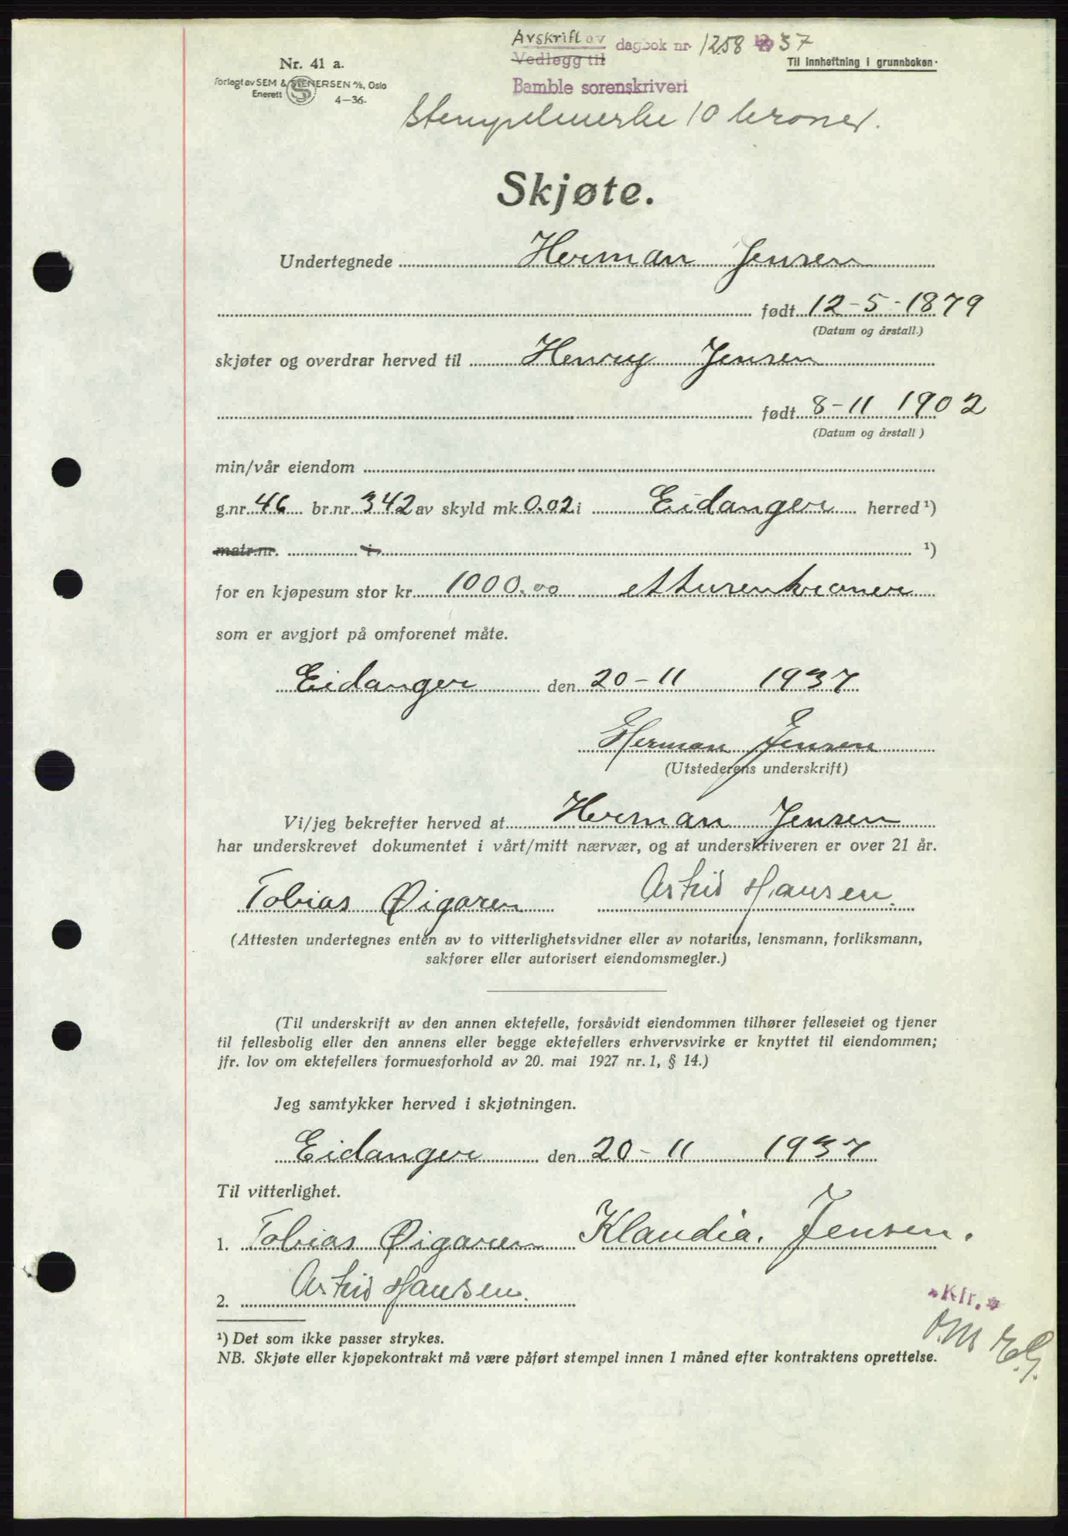 Avskrift av
Vedlegg til dagbok nr 1258 1937
Bamble sorenskriveri
Til innheftning i grunnboken.
Nr. 41 a.
Forlagt av SEM & STENERSEN A/S, Oslo
Enerett 4-36.
Stempelmerke 10 kroner.
Skjøte.
Undertegnede Herman Jensen
født 12-5-1879
(Datum og årstall.)
skjøter og overdrar herved til Henry Jensen
født 8-11 1902
(Datum og årstall)
min/vår eiendom
g.nr. 46 br.nr. 342 av skyld mk. 0.02 i Eidanger herred ¹)
matr.nr. i ¹)
for en kjøpesum stor kr. 1000.00 ettusenkroner
som er avgjort på omforenet måte.
Eidanger den 20-11 1937
Herman Jensen
(Utstederens underskrift)
Vi/jeg bekrefter herved at Herman Jensen
har underskrevet dokumentet i vårt/mitt nærvær, og at underskriveren er over 21 år.
Tobias Øigaren Astrid Hansen.
(Attesten undertegnes enten av to vitterlighetsvidner eller av notarius, lensmann, forliksmann,
sakfører eller autorisert eiendomsmegler.)
(Til underskrift av den annen ektefelle, forsåvidt eiendommen tilhører felleseiet og tjener
til fellesbolig eller den annens eller begge ektefellers erhvervsvirke er knyttet til eiendommen;
jfr. lov om ektefellers formuesforhold av 20. mai 1927 nr. 1, § 14.)
Jeg samtykker herved i skjøtningen.
Eidanger den 20-11 1937
Til vitterlighet.
1. Tobias Øigaren Klaudia. Jensen.
2. Astrid Hansen.
Kfr.
¹) Det som ikke passer strykes.
NB. Skjøte eller kjøpekontrakt må være påført stempel innen 1 måned efter kontraktens oprettelse.